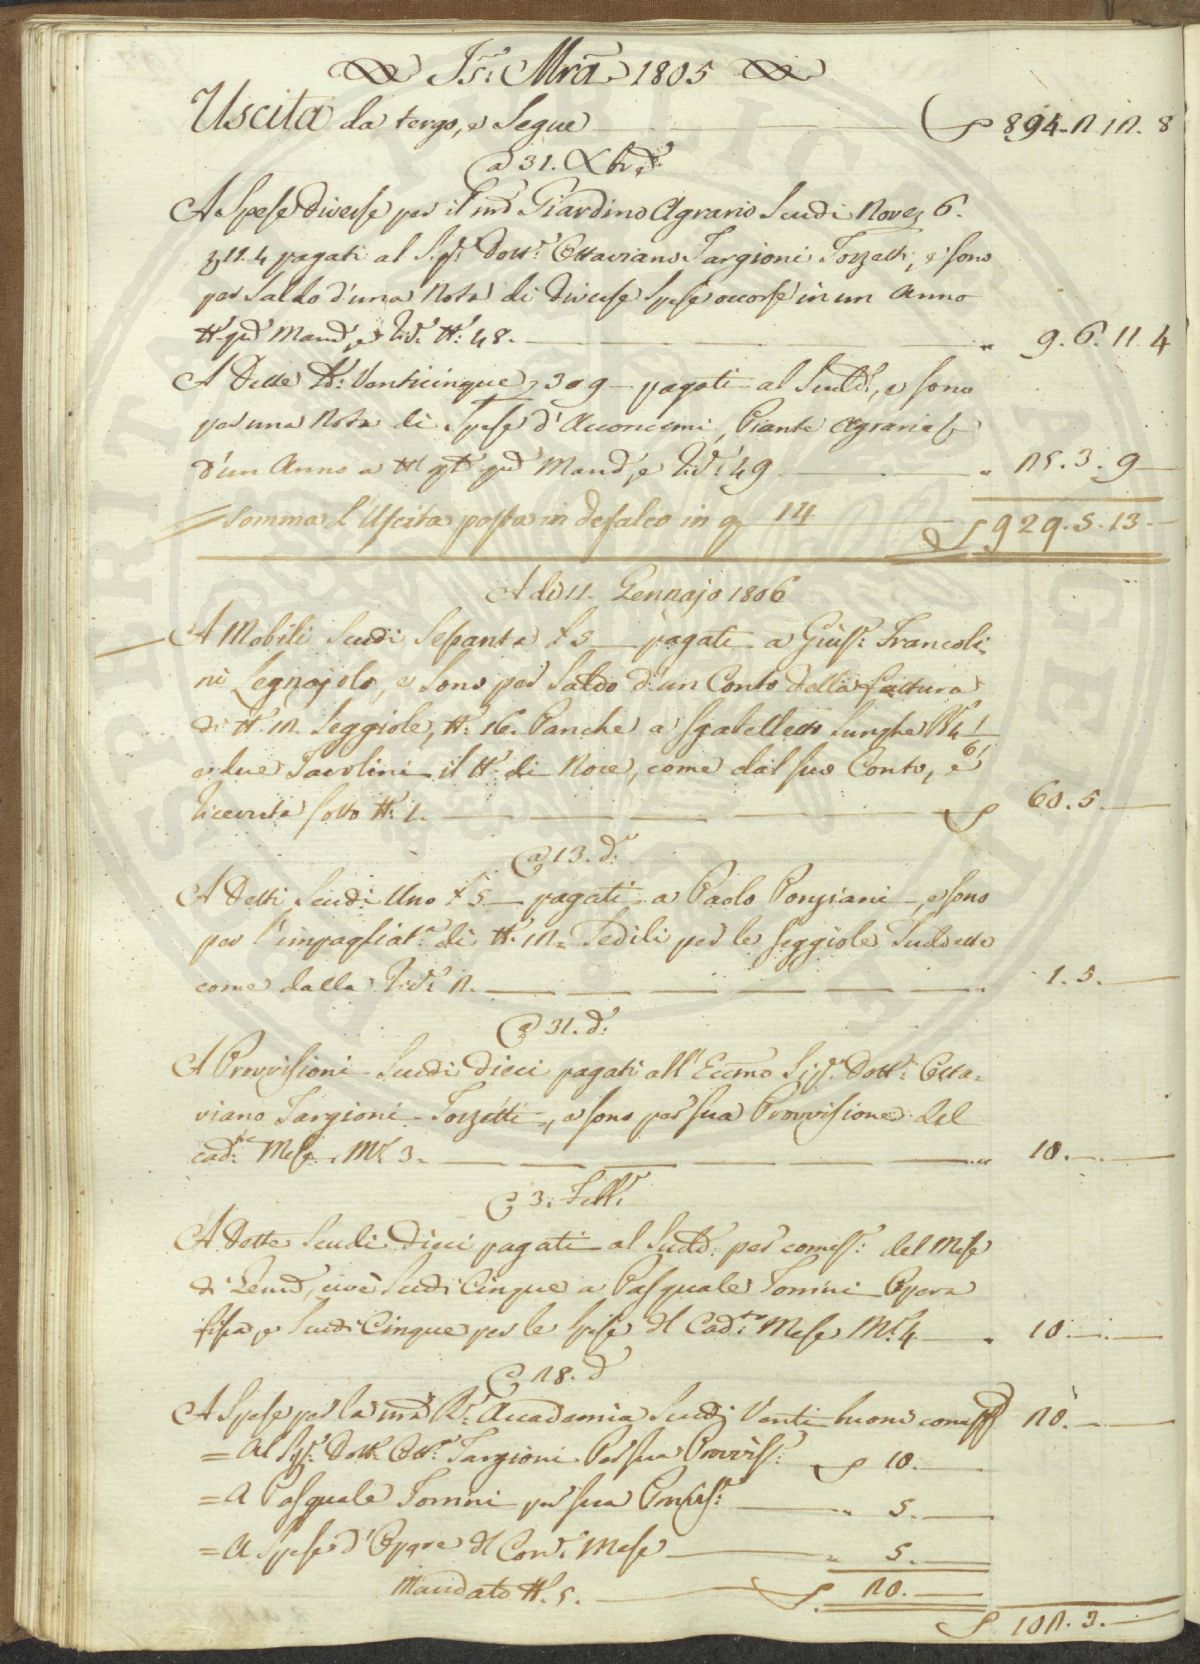 Js: Mra 1805
Uscita da tergo, e Segue ∫ 894. 2. 12. 8
a 31. Xbre
A Spese diverse per il nro Giardino Agrario Scudi Nove 6.
11.4 pagati al Sigr. Dott. Ottaviano Targioni Tozzetti, e sono
per Saldo d'una Nota di diverse Spese occorse in un Anno
Mand., e Ric. N. 48. " 9. 6. 11. 4
A Dette Sc. Venticinque 3 . 9 — pagati al Sudd., e sono
per una Nota di Spese d'Acconcimi, Piante Agrarie
d'un Anno a Mand., e Ric. 49 " 25. 3. 9
Somma l'Uscita posta in defalco in 14 ∫ 929. 5. 13. —
A di 11. Gennajo 1806
A Mobili Scudi Sessanta £ 5 — pagati a Giuse. Francoli-
ni Legnajolo, e sono per Saldo d'un Conto della fattura
di N. 12. Seggiole, N. 16. Panche a Sgabelletto lunghe B. 4 1/6
e due Tavolini il tt. di Noce, come dal suo Conto, e
Ricevuta sotto N. 1. ∫ 60. 5. —
a 13. d.
A Detti Scudi Uno £ 5 — pagati a Paolo Ponziani, e sono
per l'impagliat. di N. 12 = Sedili per le Seggiole Suddette
come dalla Ric. 2. " 1. 5. —
a 31. d.
A Provvisioni Scudi Dieci pagati all'Eccmo Sigr. Dott. Otta=
viano Targioni Tozzetti, e sono per sua Provvisione del
cad.te Mese, M. 3. " 10. —
a 3. Febb.
A Dette Scudi Dieci pagati al Sudd. per comess. del Mese
di Genn., cioè Scudi Cinque a Pasquale Tonini Opera
fissa e Scudi Cinque per le Spese del Cad.te Mese M. 4 " 10. —
a 28. d.
A Spese per la nra R. Accademia Scudi Venti buoni comess. 20. —
= Al Sigr. Dott. Ott. Targioni Per sua Provvis. ∫ 10. —
= A Pasquale Tonini per sua Provvis. " 5. —
= A Spese d'Opere del Corr. Mese " 5. —
Mandato N. 5. ∫ 20. —
∫ 102. 3. —